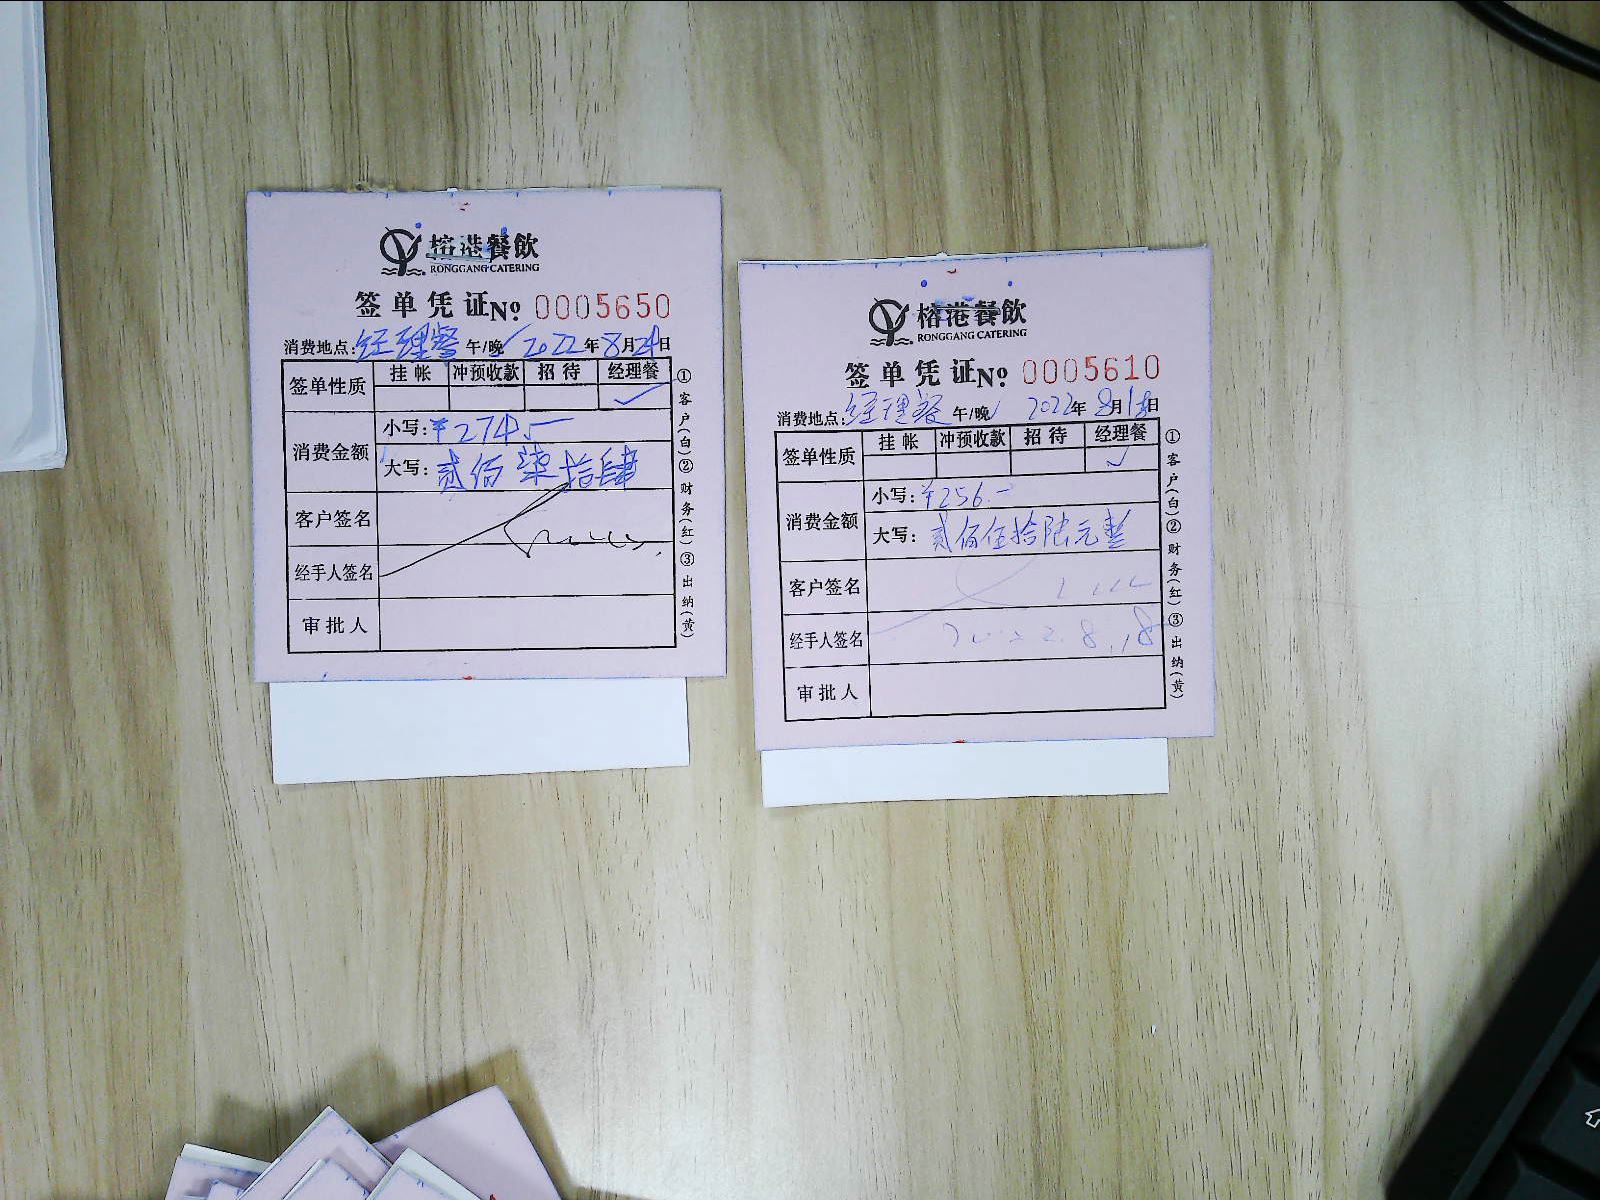 榕港餐飲
RONGGANG CATERING
签单凭证No. 0005650
消费地点:经理餐 午/晚 2022年8月24日
签单性质 挂帐 冲预收款 招待 经理餐
✓
消费金额 小写:¥274.-
大写:贰佰柒拾肆
客户签名
经手人签名
审批人
①客户(白)②财务(红)③出纳(黄)
榕港餐飲
RONGGANG CATERING
签单凭证No. 0005610
消费地点:经理餐 午/晚 2022年8月18日
签单性质 挂帐 冲预收款 招待 经理餐
✓
消费金额 小写:¥256.-
大写:贰佰伍拾陆元整
客户签名
经手人签名 2022.8.18
审批人
①客户(白)②财务(红)③出纳(黄)